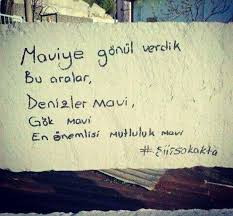 Maviye gönül verdik
Bu aralar,
Denizler mavi,
Gök mavi
En önemlisi mutluluk mavi
#şiirsokakta